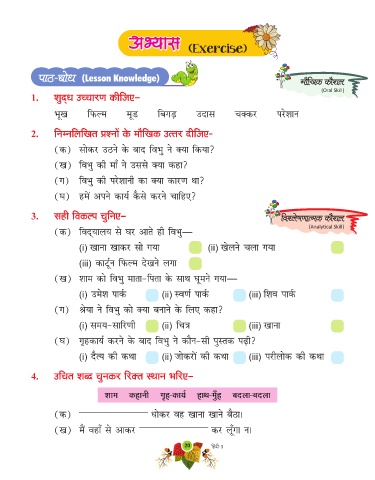 अभ्यास (Exercise)
पाठ-बोध (Lesson Knowledge)
मौखिक कौशल
(Oral Skill)
1. शुद्ध उच्चारण कीजिए–
भूख फिल्म मूड बिगड़ उदास चक्कर परेशान
2. निम्नलिखित प्रश्नों के मौखिक उत्तर दीजिए-
(क) सोकर उठने के बाद विभु ने क्या किया?
(ख) विभु की माँ ने उससे क्या कहा?
(ग) विभु की परेशानी का क्या कारण था?
(घ) हमें अपने कार्य कैसे करने चाहिए?
विश्लेषणात्मक कौशल
(Analytical Skill)
3. सही विकल्प चुनिए–
(क) विद्यालय से घर आते ही विभु—
(i) खाना खाकर सो गया (ii) खेलने चला गया
(iii) कार्टून फिल्म देखने लगा
(ख) शाम को विभु माता-पिता के साथ घूमने गया—
(i) उमेश पार्क (ii) स्वर्ण पार्क (iii) शिव पार्क
(ग) श्रेया ने विभु को क्या बनाने के लिए कहा?
(i) समय-सारिणी (ii) चित्र (iii) खाना
(घ) गृहकार्य करने के बाद विभु ने कौन-सी पुस्तक पढ़ी?
(i) दैत्य की कथा (ii) जोकरों की कथा (iii) परीलोक की कथा
4. उचित शब्द चुनकर रिक्त स्थान भरिए–
शाम कहानी गृह-कार्य हाथ-मुँह बदला-बदला
(क) ____________ धोकर वह खाना खाने बैठा।
(ख) मैं वहाँ से आकर ____________ कर लूँगा न।
20 हिंदी